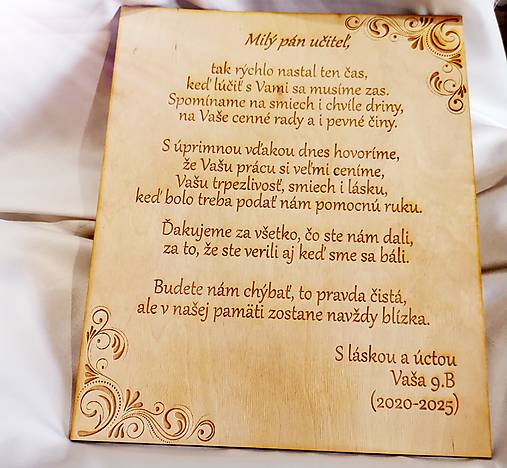 Milý pán učiteľ,
tak rýchlo nastal ten čas,
keď lúčiť s Vami sa musíme zas.
Spomíname na smiech i chvíle driny,
na Vaše cenné rady a i pevné činy.
S úprimnou vďakou dnes hovoríme,
že Vašu prácu si veľmi ceníme,
Vašu trpezlivosť, smiech i lásku,
keď bolo treba podať nám pomocnú ruku.
Ďakujeme za všetko, čo ste nám dali,
za to, že ste verili aj keď sme sa báli.
Budete nám chýbať, to pravda čistá,
ale v našej pamäti zostane navždy blízka.
S láskou a úctou
Vaša 9.B
(2020-2025)